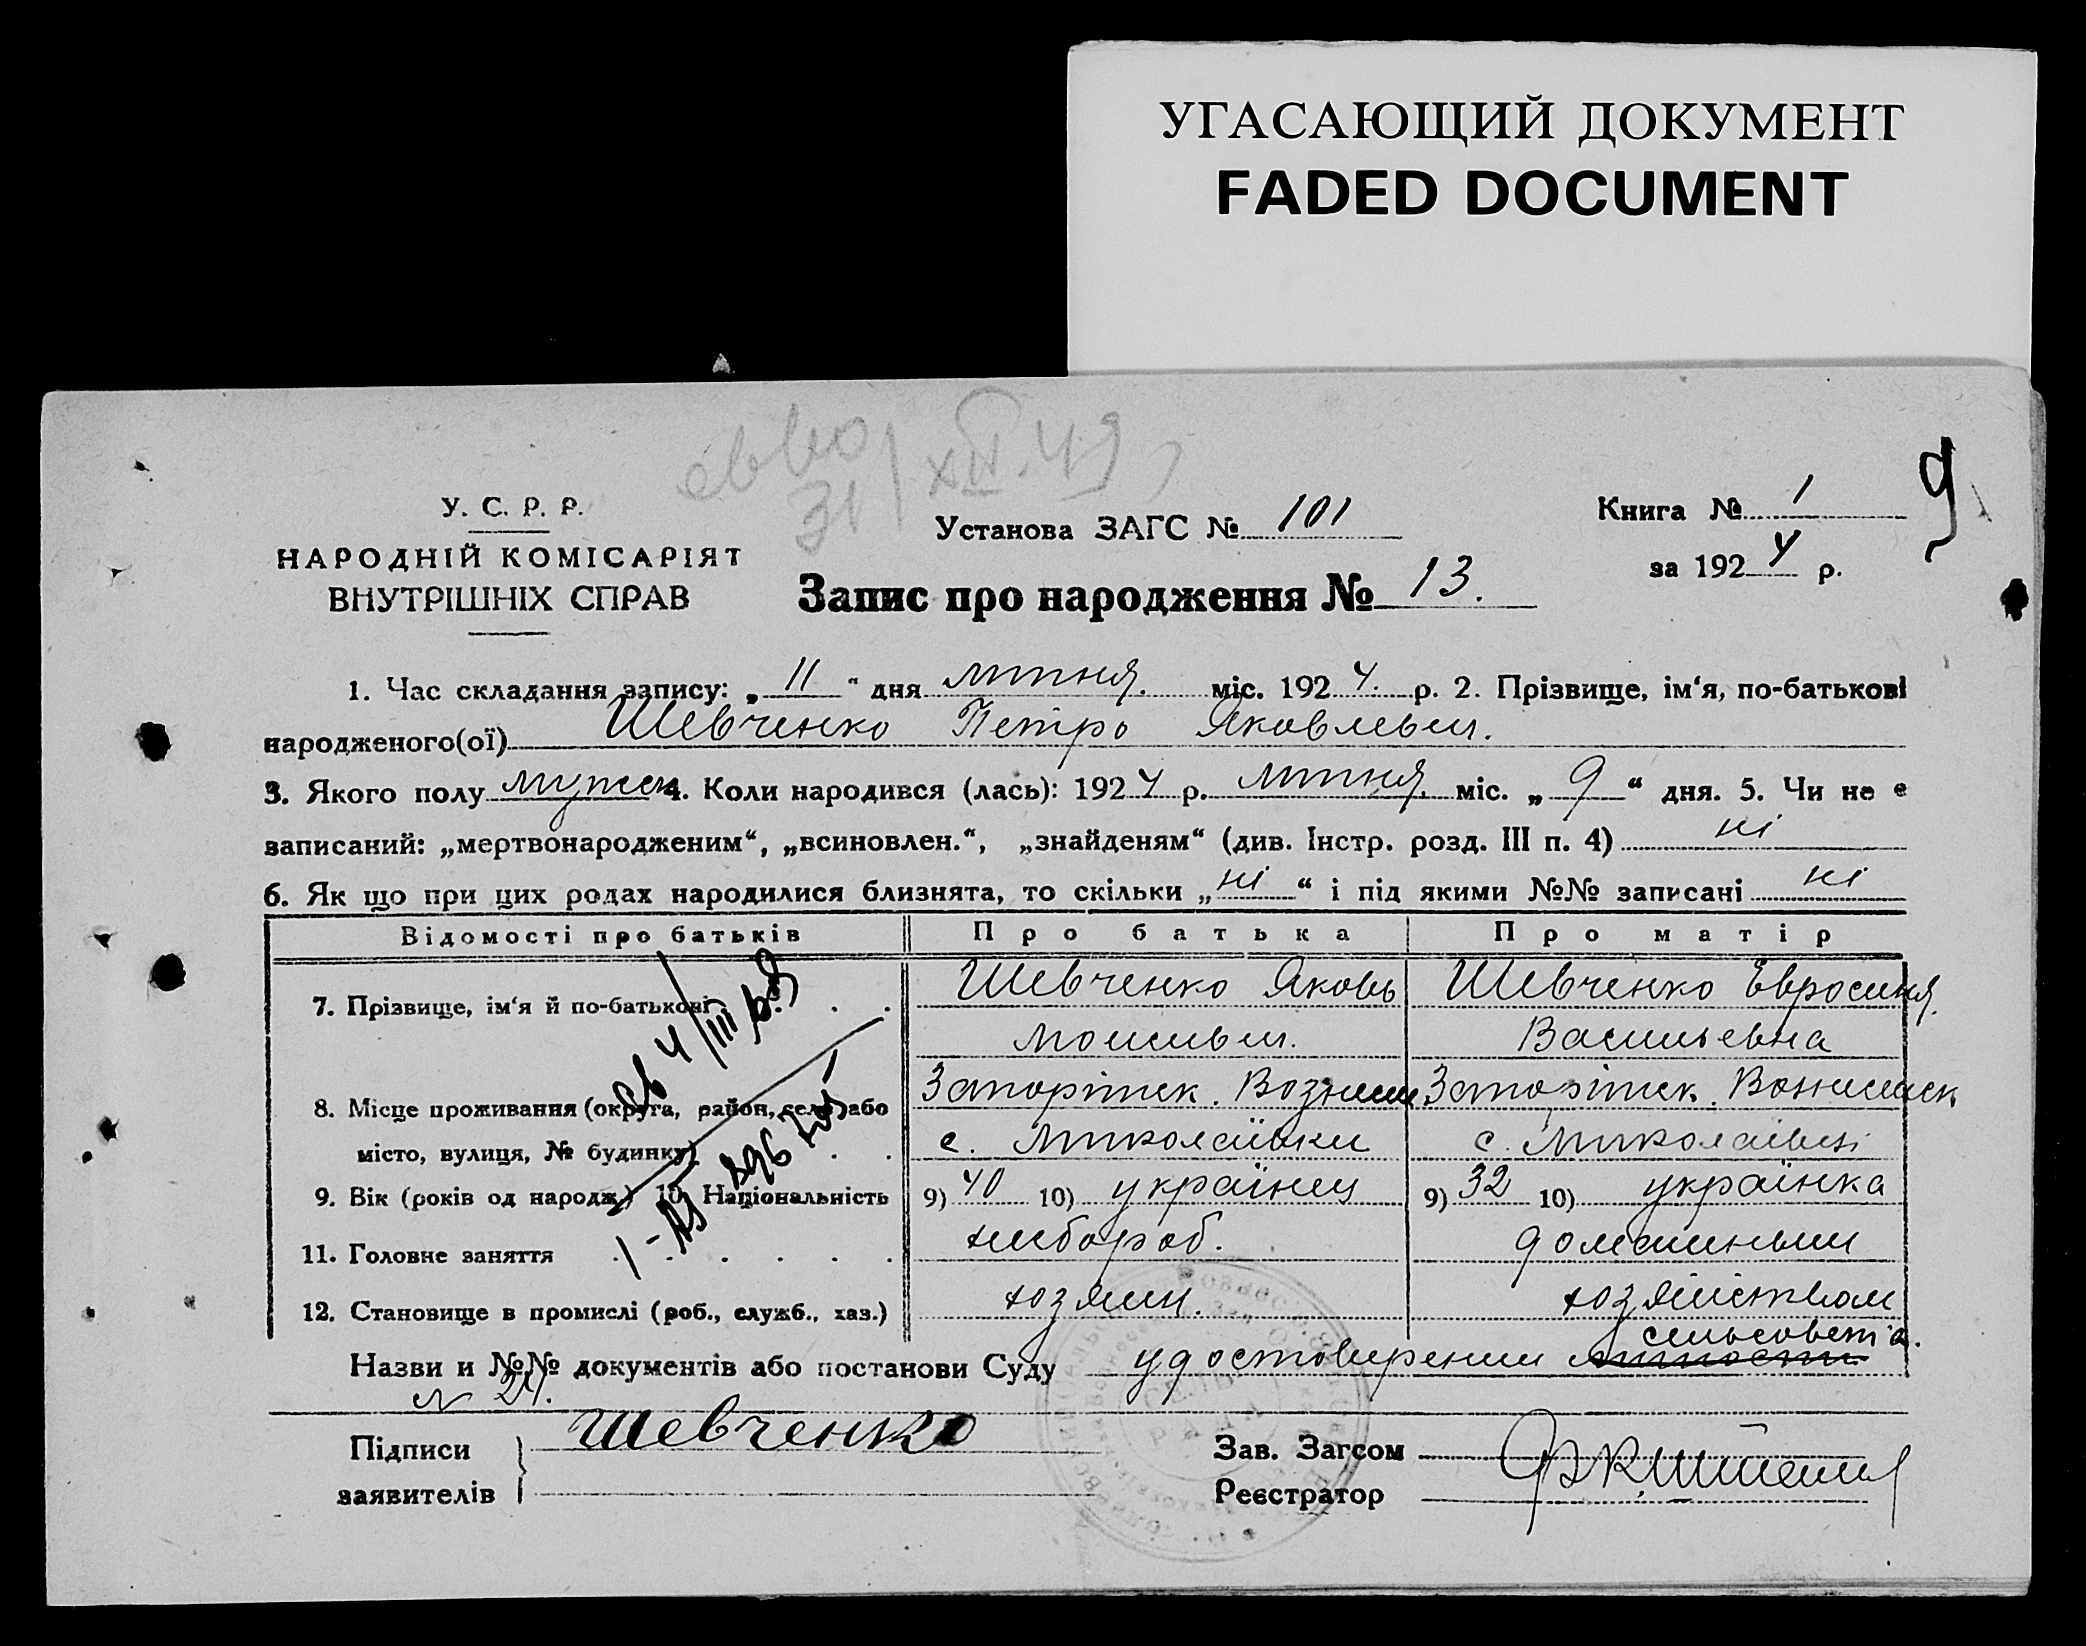 УГАСАЮЩИЙ ДОКУМЕНТ
FADED DOCUMENT
31/XII.49
9
У. С. Р. Р.
НАРОДНІЙ КОМІСАРІЯТ
ВНУТРІШНІХ СПРАВ
Установа ЗАГС № 101
Книга № 1
за 1924 р.
Запис про народження № 13.
1. Час складання запису: „11“ дня липня. міс. 1924. р. 2. Прізвище, ім‘я, по-батькові
народженого(ої) Шевченко Петро Яковлевич.
3. Якого полу мужск 4. Коли народився (лась): 1924 р. липня. міс. „9“ дня. 5. Чи не є
записаний: „мертвонародженим“, „всиновлен.“, „знайденям“ (див. Інстр. розд. III п. 4) ні
6. Як що при цих родах народилися близнята, то скільки „ні“ і під якими №№ записані ні
Відомості про батьків Про батька Про матір
7. Прізвище, ім‘я й по-батькові . . . Шевченко Яковь Шевченко Евросиня.
Васильевна
8. Місце проживання (округа, район, село або
місто, вулиця, № будинку) . . с. Миколаївки с. Миколаївці
9. Вік (років од народж.) 10. Національність 9) 40 10) українец 9) 32 10) українка
11. Головне заняття . . . . . . хлебороб. домашним
12. Становище в промислі (роб., служб., хаз.) хозяин. хозяйством
сельсовета.
Назви и №№ документів або постанови Суду удостоверении
N 21.
Підписи
заявителів
Шевченко
Зав. Загсом
Реєстратор